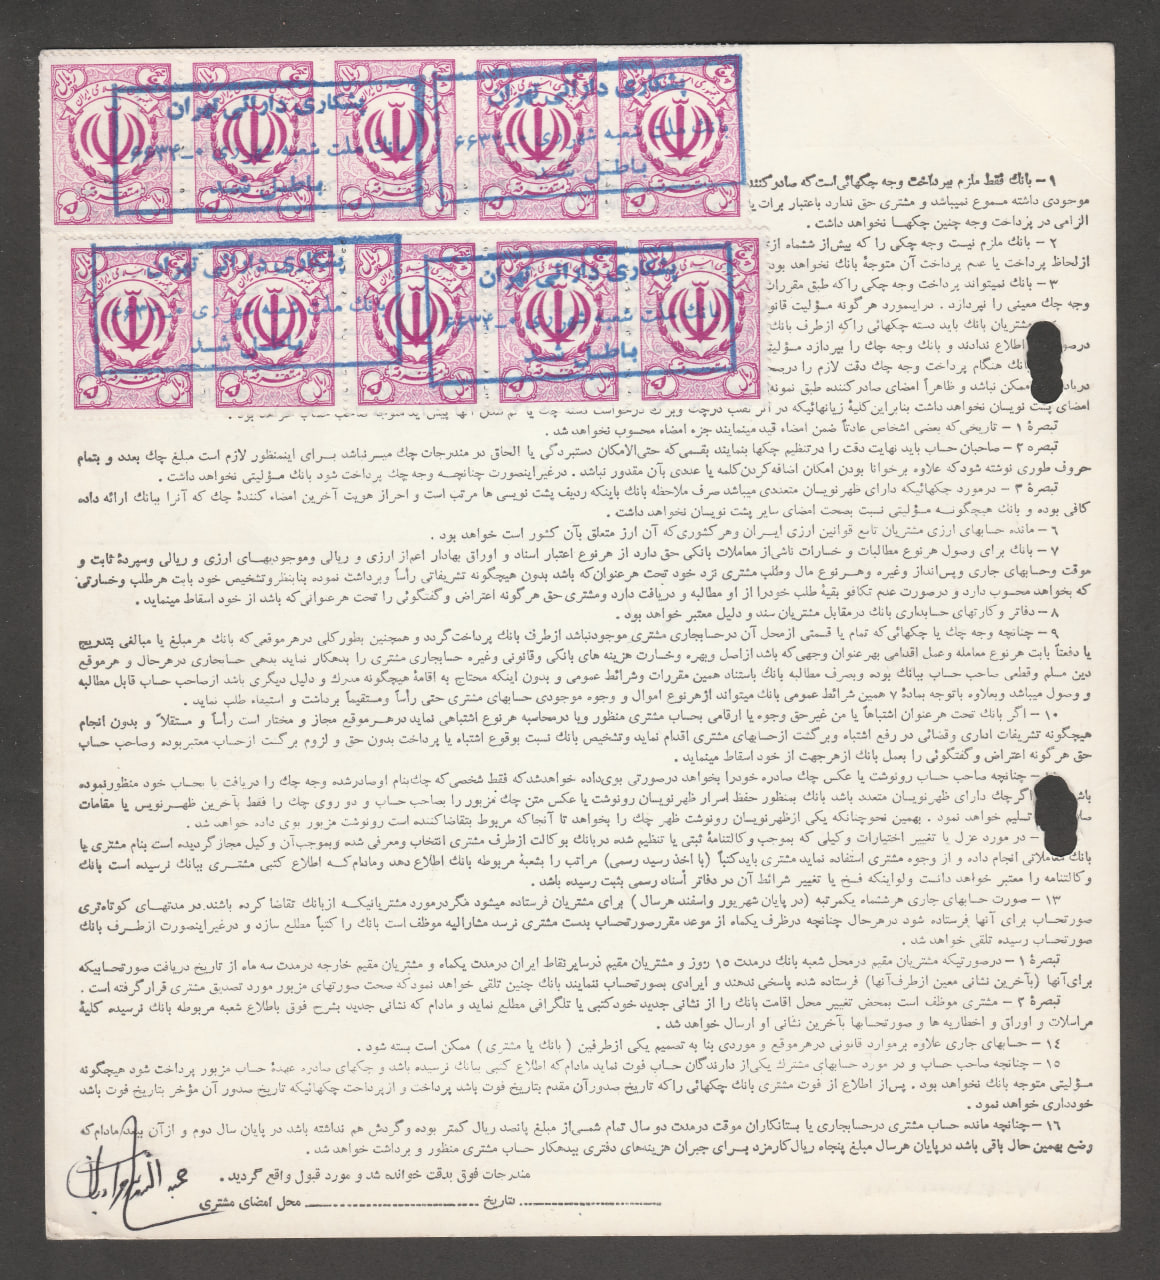 پیشکاری دارائی تهران
بانك ملت شعبه شهرری ۰ــ۶۶۳۴
باطل شد
پیشکاری دارائی تهران
بانك ملت شعبه شهرری ۰ــ۶۶۳۴
باطل شد
پیشکاری دارائی تهران
بانك ملت شعبه شهرری ۰ــ۶۶۳۴
باطل شد
پیشکاری دارائی تهران
بانك ملت شعبه شهرری ۰ــ۶۶۳۴
باطل شد
۱ – بانك فقط ملزم بپرداخت وجه چکهائی است که صادر کننده
موجودی داشته مسموع نمیباشد و مشتری حق ندارد باعتبار برات یا
الزامی در پرداخت وجه چنین چکها نخواهد داشت .
۲ – بانك ملزم نیست وجه چکی را که بیش از ششماه از
از لحاظ پرداخت یا عدم پرداخت آن متوجهٔ بانك نخواهد بود
۳ – بانك نمیتواند پرداخت وجه چکی را که طبق مقررات
وجه چك معینی را نپردازد . در اینمورد هر گونه مسؤلیت قانو
مشتریان بانك باید دسته چکهائی را که از طرف بانك
اطلاع ندادند و بانك وجه چك را بپردازد مسؤلیت
بانك هنگام پرداخت وجه چك دقت لازم را درصح
ممکن نباشد و ظاهراً امضای صادر کننده طبق نمونه
امضای پشت نویسان نخواهد داشت بنابراین کلیهٔ زیانهائیکه در اثر
تبصرهٔ ۱ – تاریخی که بعضی اشخاص عادتاً ضمن امضاء قید مینمایند جزء امضاء محسوب نخواهد شد .
تبصرهٔ ۲ – صاحبان حساب باید نهایت دقت را درتنظیم چکها بنمایند بقسمی که حتی الامکان دستبردگی یا الحاق در مندرجات چك میسر نباشد برای اینمنظور لازم است مبلغ چك بعدد و بتمام
حروف طوری نوشته شود که علاوه بر خوانا بودن امکان اضافه کردن کلمه یا عددی بآن مقدور نباشد . درغیراینصورت چنانچه وجه چك پرداخت شود بانك مسؤلیتی نخواهد داشت .
تبصرهٔ ۳ – درمورد چکهائیکه دارای ظهرنویسان متعددی میباشد صرف ملاحظه بانك باینکه ردیف پشت نویسی ها مرتب است و احراز هویت آخرین امضاء کنندهٔ چك که آنرا ببانك ارائه داده
کافی بوده و بانك هیچگونه مسؤلیتی نسبت بصحت امضای سایر پشت نویسان نخواهد داشت .
۶ – مانده حسابهای ارزی مشتریان تابع قوانین ارزی ایران و هر کشوری که آن ارز متعلق بآن کشور است خواهد بود .
۷ – بانك برای وصول هر نوع مطالبات و خسارات ناشی از معاملات بانکی حق دارد از هر نوع اعتبار اسناد و اوراق بهادار اعم از ارزی و ریالی وموجودیهای ارزی و ریالی وسپردهٔ ثابت و
موقت وحسابهای جاری وپس انداز وغیره وهر نوع مال وطلب مشتری نزد خود تحت هر عنوان که باشد بدون هیچگونه تشریفاتی رأساً وبرداشت نموده بنابنظر وتشخیص خود بابت هر طلب وخسارتی
که بخواهد محسوب دارد و درصورت عدم تکافو بقیهٔ طلب خودرا از او مطالبه و دریافت دارد ومشتری حق هر گونه اعتراض و گفتگوئی را تحت هر عنوانی که باشد از خود اسقاط مینماید .
۸ – دفاتر و کارتهای حسابداری بانك درمقابل مشتریان سند و دلیل معتبر خواهد بود .
۹ – چنانچه وجه چك یا چکهائی که تمام یا قسمتی از محل آن درحسابجاری مشتری موجود نباشد از طرف بانك پرداخت گردد و همچنین بطور کلی درهر موقعی که بانك هر مبلغ یا مبالغی بتدریج
یا دفعتاً بابت هر نوع معامله وعمل اقدامی بهر عنوان وجهی که باشد ازاصل وبهره وخسارت هزینه های بانکی وقانونی وغیره حسابجاری مشتری را بدهکار نماید بدهی حسابجاری درهرحال و هرموقع
دین مسلم وقطعی صاحب حساب ببانك بوده وبصرف مطالبه بانك باستناد همین مقررات وشرائط عمومی و بدون اینکه محتاج به اقامهٔ هیچگونه مدرك و دلیل دیگری باشد ازصاحب حساب قابل مطالبه
و وصول میباشد وبعلاوه باتوجه بمادهٔ ۷ همین شرائط عمومی بانك میتواند ازهر نوع اموال و وجوه موجودی حسابهای مشتری حتی رأساً ومستقیماً برداشت و استیفاء طلب نماید .
۱۰ – اگر بانك تحت هر عنوان اشتباهاً یا من غیر حق وجوه یا ارقامی بحساب مشتری منظور ویا درمحاسبه هر نوع اشتباهی نماید درهر موقع مجاز و مختار است رأساً و مستقلاً و بدون انجام
هیچگونه تشریفات اداری وقضائی در رفع اشتباه وبرگشت ازحسابهای مشتری اقدام نماید وتشخیص بانك نسبت بوقوع اشتباه یا پرداخت بدون حق و لزوم برگشت ازحساب معتبر بوده وصاحب حساب
حق هر گونه اعتراض و گفتگوئی را بعمل بانك از هر جهت از خود اسقاط مینماید .
– چنانچه صاحب حساب رونوشت یا عکس چك صادره خودرا بخواهد درصورتی بوی داده خواهد شد که فقط شخصی که چك بنام او صادر شده وجه چك را دریافت یا بحساب خود منظور نموده
اگر چك دارای ظهر نویسان متعدد باشد بانك بمنظور حفظ اسرار ظهر نویسان رونوشت یا عکس متن چك مزبور را بصاحب حساب و دو روی چك را فقط بآخرین ظهر نویس یا مقامات
تسلیم خواهد نمود . بهمین نحو چنانکه یکی از ظهر نویسان رونوشت ظهر چك را بخواهد تا آنجا که مربوط بتقاضا کننده است رونوشت مزبور بوی داده خواهد شد .
– در مورد عزل یا تغییر اختیارات و کیلی که بموجب وکالتنامهٔ ثبتی یا تنظیم شده در بانك بوکالت از طرف مشتری انتخاب و معرفی شده و بموجب آن وکیل مجاز گردیده است بنام مشتری یا
بانك معاملاتی انجام داده و از وجوه مشتری استفاده نماید مشتری باید کتباً (با اخذ رسید رسمی) مراتب را بشعبهٔ مربوطه بانك اطلاع دهد و مادام که اطلاع کتبی مشتری ببانك نرسیده است بانك
وکالتنامه را معتبر خواهد دانست ولو اینکه فسخ یا تغییر شرائط آن در دفاتر اسناد رسمی بثبت رسیده باشد .
۱۳ – صورت حسابهای جاری هر ششماه یکمرتبه (در پایان شهریور واسفند هرسال) برای مشتریان فرستاده میشود مگر درمورد مشتریانیکه از بانك تقاضا کرده باشند در مدتهای کوتاه تری
صورتحساب برای آنها فرستاده شود درهرحال چنانچه درظرف یکماه از موعد مقرر صورتحساب بدست مشتری نرسد مشارالیه موظف است بانك را کتباً مطلع سازد و درغیر اینصورت از طرف بانك
صورتحساب رسیده تلقی خواهد شد .
تبصرهٔ ۱ – درصورتیکه مشتریان مقیم درمحل شعبه بانك درمدت ۱۵ روز و مشتریان مقیم درسایر نقاط ایران درمدت یکماه و مشتریان مقیم خارجه درمدت سه ماه از تاریخ دریافت صورتحسابیکه
برای آنها (بآخرین نشانی معین از طرف آنها) فرستاده شده پاسخی ندهند و ایرادی بصورتحساب ننمایند بانك چنین تلقی خواهد نمود که صحت صورتهای مزبور مورد تصدیق مشتری قرار گرفته است .
تبصرهٔ ۲ – مشتری موظف است بمحض تغییر محل اقامت بانك را از نشانی جدید خود کتبی یا تلگرافی مطلع نماید و مادام که نشانی جدید بشرح فوق باطلاع شعبه مربوطه بانك نرسیده کلیهٔ
مراسلات و اوراق و اخطاریه ها و صورتحسابها بآخرین نشانی او ارسال خواهد شد .
۱٤ – حسابهای جاری علاوه برموارد قانونی درهر موقع و موردی بنا به تصمیم یکی از طرفین ( بانك یا مشتری ) ممکن است بسته شود .
۱۵ – چنانچه صاحب حساب و در مورد حسابهای مشترك یکی از دارندگان حساب فوت نماید مادام که اطلاع کتبی ببانك نرسیده باشد و چکهای صادره عهدهٔ حساب مزبور پرداخت شود هیچگونه
مسؤلیتی متوجه بانك نخواهد بود . پس از اطلاع از فوت مشتری بانك چکهائی را که تاریخ صدور آن مقدم بتاریخ فوت باشد پرداخت و از پرداخت چکهائیکه تاریخ صدور آن مؤخر بتاریخ فوت باشد
خودداری خواهد نمود .
۱۶ – چنانچه مانده حساب مشتری درحسابجاری یا بستانکاران موقت درمدت دو سال تمام شمسی از مبلغ پانصد ریال کمتر بوده و گردش هم نداشته باشد در پایان سال دوم و از آن ببعد مادام که
وضع بهمین حال باقی باشد درپایان هرسال مبلغ پنجاه ریال کارمزد برای جبران هزینه های دفتری ببدهکار حساب مشتری منظور و برداشت خواهد شد .
مندرجات فوق بدقت خوانده شد و مورد قبول واقع گردید .
بتاریخ محل امضای مشتری